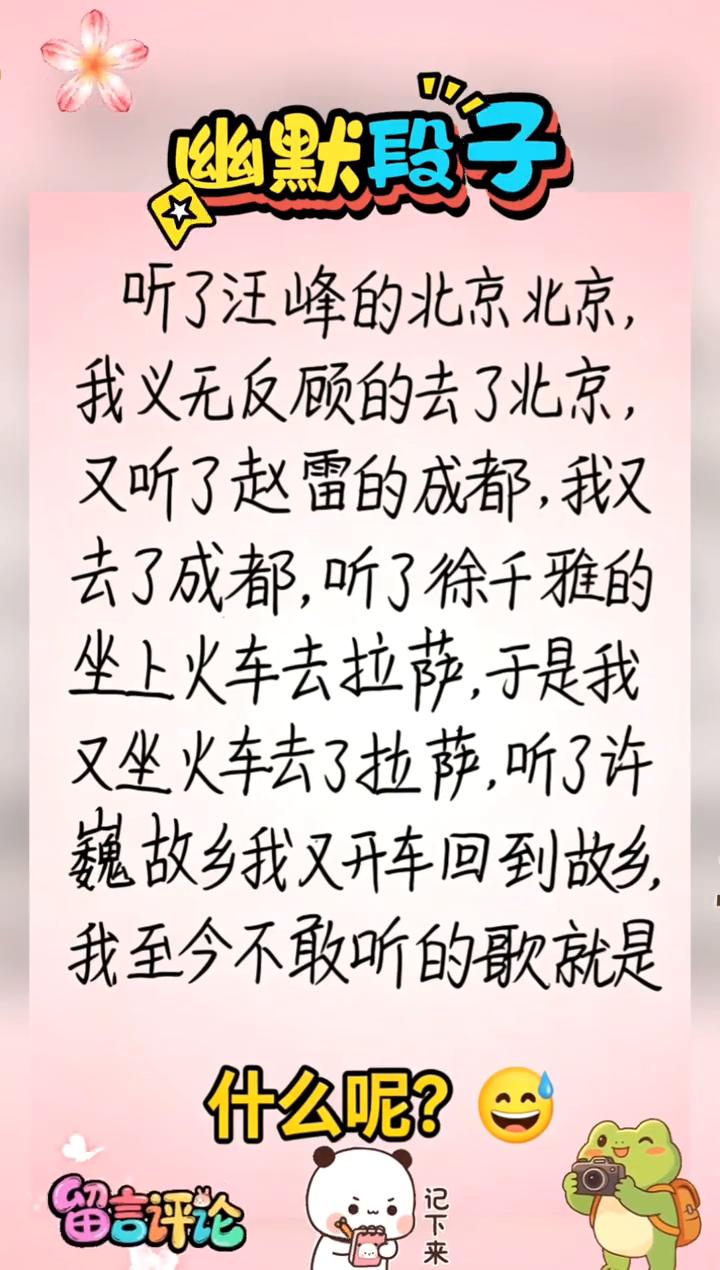 幽默段子
听了汪峰的北京北京,
我义无反顾的去了北京,
又听了赵雷的成都,我又
去了成都,听了徐千雅的
坐上火车去拉萨,于是我
又坐火车去了拉萨,听了许
巍故乡我又开车回到故乡,
我至今不敢听的歌就是
什么呢?
留言评论
记下来